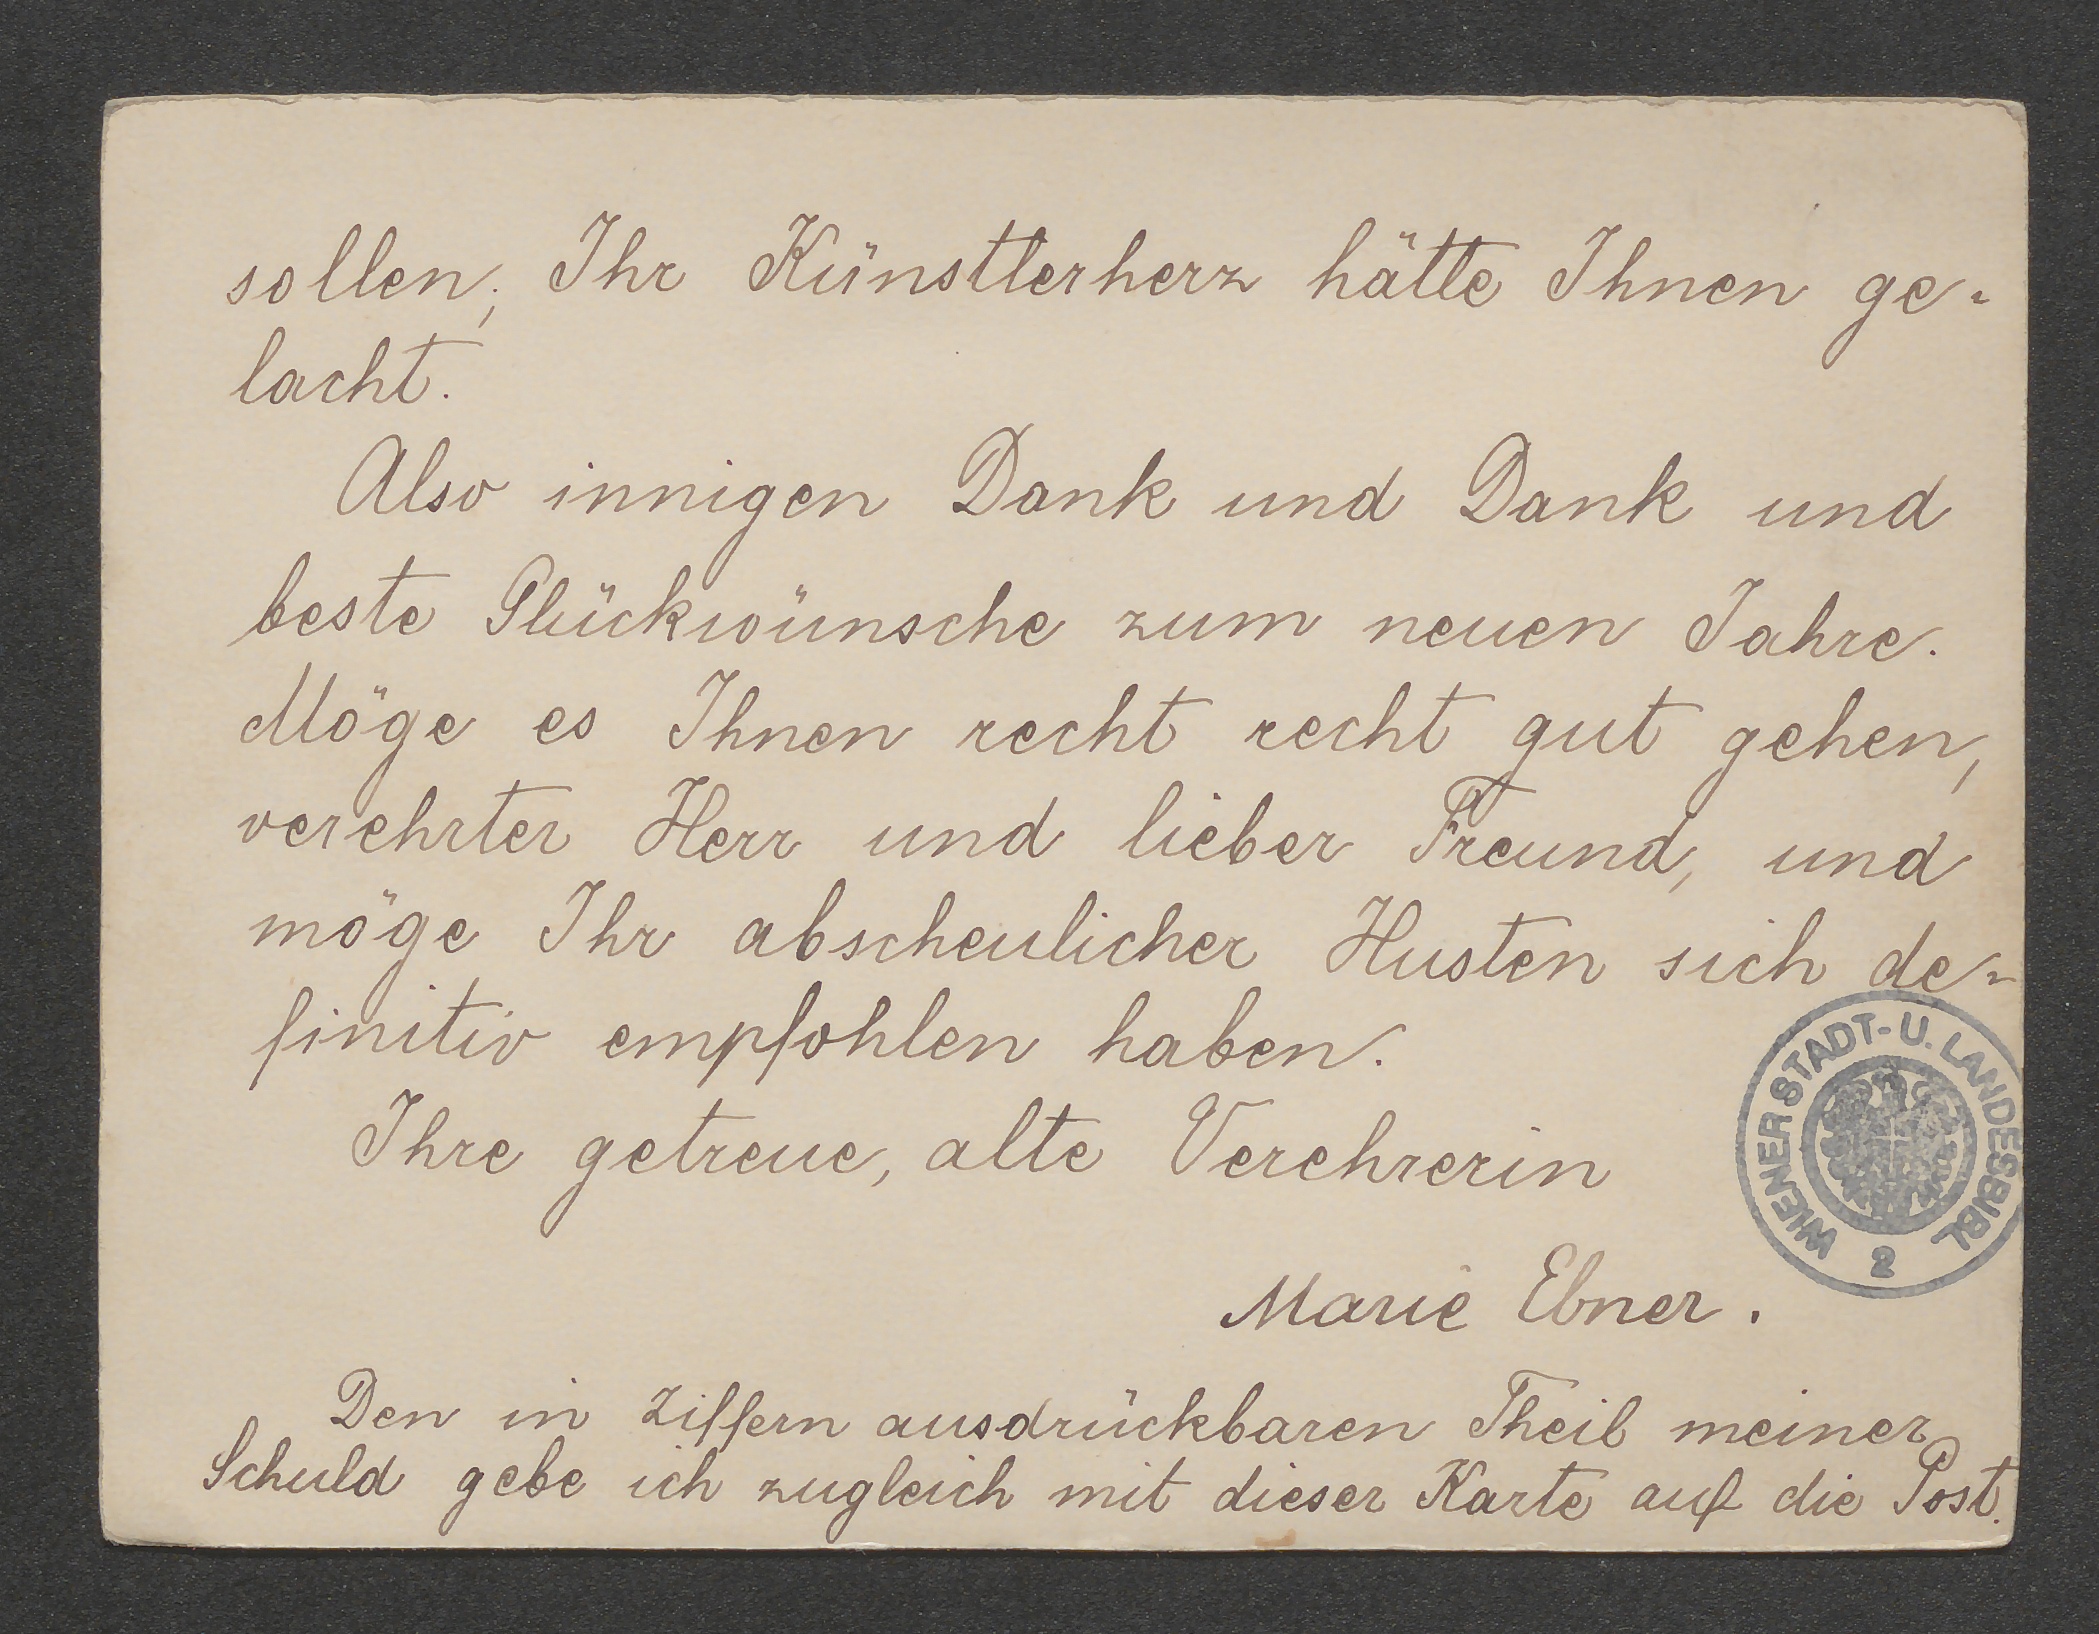 sollen; Ihr Künstlerherz hätte Ihnen ge-
lacht.
Also innigen Dank und Dank und
beste Glückwünsche zum neuen Jahre.
Möge es Ihnen recht recht gut gehen,
verehrter Herr und lieber Freund, und
möge Ihr abscheulicher Husten sich de-
finitiv empfohlen haben.
Ihre getreue, alte Verehrerin
Marie Ebner.
Den in Ziffern ausdrückbaren Theil meiner
Schuld gebe ich zugleich mit dieser Karte auf die Post.
WIENER STADT- U. LANDESBIBL
2